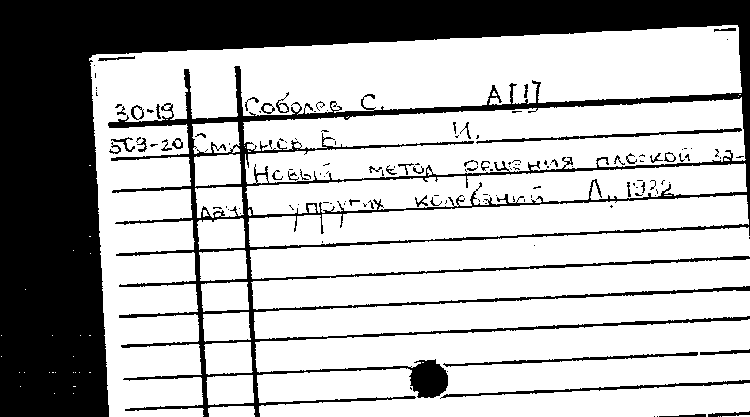 30-19 Соболев, С. А[1]
509-20 Смирнов, В. И.
Новый метод решения плоской за-
дачи упругих колебаний Л., 1932